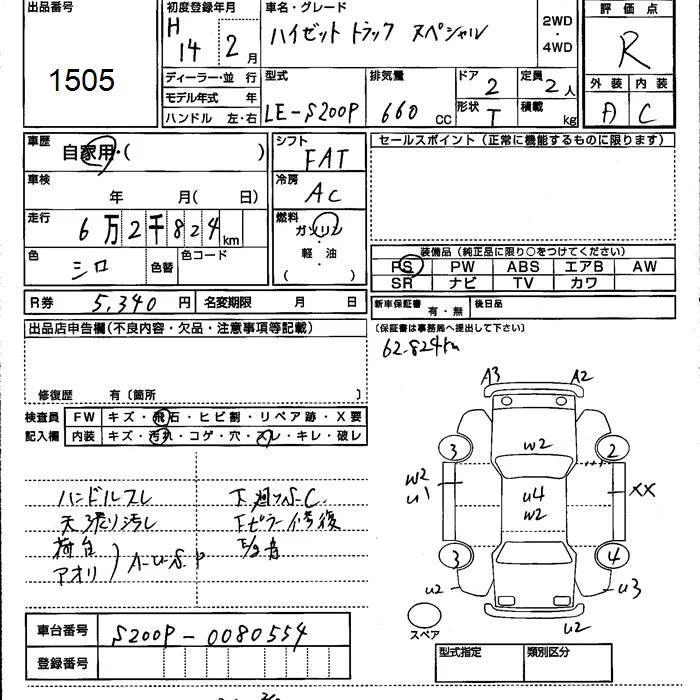 出品番号
1505
初度登録年月
H 14 2 月
車名・グレード
ハイゼット トラック スペシャル
2WD
・
4WD
評価点
R
外装 内装
A C
ディーラー・並行
モデル年式 年
ハンドル 左・右
型式
LE-S200P
排気量
660 CC
ドア 2
形状 T
定員 2 人
積載 kg
車歴
自家用・( )
車検
年 月( 日)
走行
6万2千824km
色
シロ
色替
色コード
シフト
FAT
冷房
AC
燃料
ガソリン
軽・油
( )
セールスポイント(正常に機能するものに限ります)
装備品(純正品に限り○をつけてください)
PS PW ABS エアB AW
SR ナビ TV カワ
R券 5,340 円 名変期限 月 日
新車保証書 有・無 後日品
(保証書は事務局へ提出して下さい)
62.824km
出品店申告欄(不良内容・欠品・注意事項等記載)
修復歴 有〔箇所 〕
検査員 FW キズ・飛石・ヒビ割・リペア跡・X要
記入欄 内装 キズ・汚れ・コゲ・穴・スレ・キレ・破レ
ハンドルスレ
天張り汚レ
荷台
アオリ
A-U-S.P
下廻りS.C
Fピラー修復
A3 A2
3 W2 2
W2
U1
U4
W2
XX
3 4
U2 U3
U2
スペア
車台番号 S200P-0080554
登録番号
型式指定 類別区分